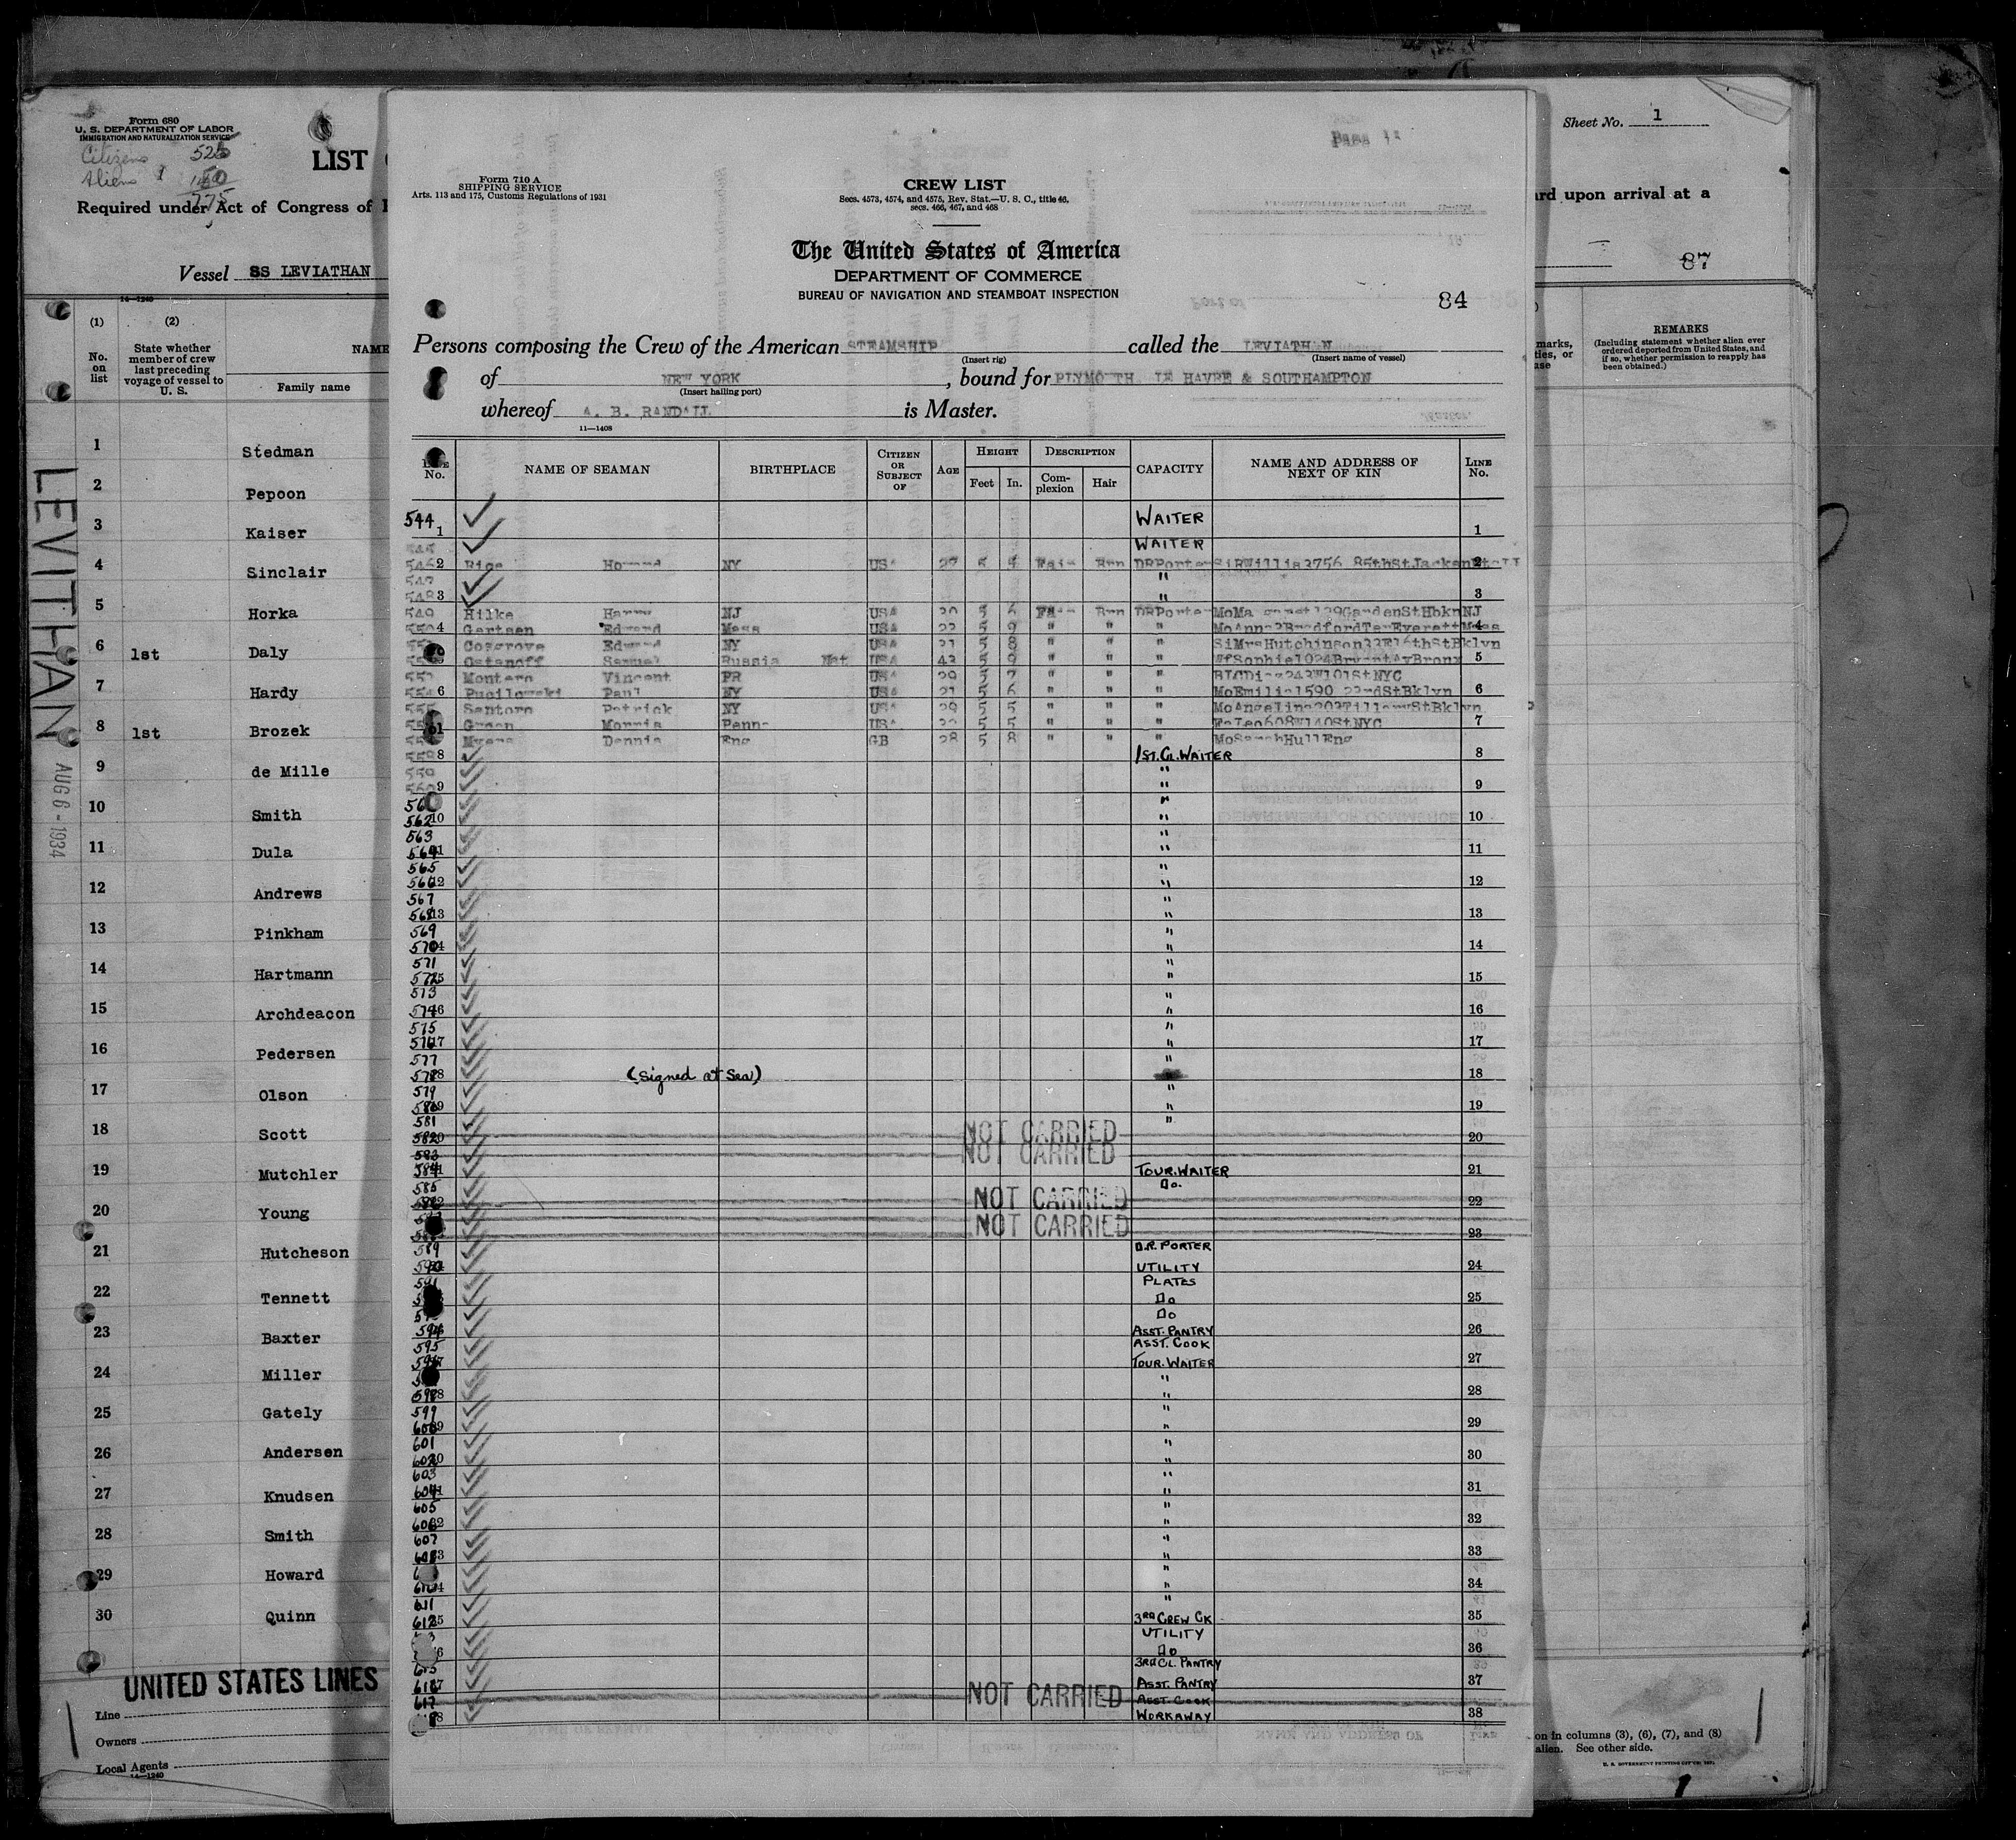 Form 680
U. S. DEPARTMENT OF LABOR
IMMIGRATION AND NATURALIZATION SERVICE
Citizens 525
Aliens
775
LIST
Required under Act of Congress of
Vessel SS LEVIATHAN
14—1240
(1) (2)
No. on list
State whether member of crew last preceding voyage of vessel to U. S.
NAME
Family name
1 Stedman
2 Pepoon
3 Kaiser
4 Sinclair
5 Horka
6 1st Daly
7 Hardy
8 1st Brozek
9 de Mille
10 Smith
11 Dula
12 Andrews
13 Pinkham
14 Hartmann
15 Archdeacon
16 Pedersen
17 Olson
18 Scott
19 Mutchler
20 Young
21 Hutcheson
22 Tennett
23 Baxter
24 Miller
25 Gately
26 Andersen
27 Knudsen
28 Smith
29 Howard
30 Quinn
LEVITHAN AUG 6 - 1934
UNITED STATES LINES
Line
Owners
Local Agents
14—1240
Form 710 A
SHIPPING SERVICE
Arts. 113 and 175, Customs Regulations of 1931
CREW LIST
Secs. 4573, 4574, and 4575, Rev. Stat.—U. S. C., title 46,
secs. 466, 467, and 468
The United States of America
DEPARTMENT OF COMMERCE
BUREAU OF NAVIGATION AND STEAMBOAT INSPECTION
84
Persons composing the Crew of the American STEAMSHIP called the LEVIATHAN
(Insert rig) (Insert name of vessel)
of NEW YORK, bound for PLYMOUTH LE HAVRE & SOUTHAMPTON
(Insert hailing port)
whereof A. B. RANDALL is Master.
11—1408
LINE No. NAME OF SEAMAN BIRTHPLACE CITIZEN OR SUBJECT OF AGE HEIGHT Feet In. DESCRIPTION Complexion Hair CAPACITY NAME AND ADDRESS OF NEXT OF KIN LINE No.
544 1 WAITER 1
545 WAITER
546 2 Rice Howard NY USA 27 5 Fair Brn DRPorter 2
547 "
548 3 " 3
549 Hilke Harry NJ USA 30 5 6 Fair Brn DRPorter GardenStHbknNJ
550 4 Gertsen Edward Mass USA 23 5 9 " " " MoAnna3BradfordTerEverettMass 4
Cosgrove Edward NY USA 31 5 8 " " " SiMrsHutchinson33E16thStBklyn
Ostanoff Samuel Russia Nat USA 43 5 9 " " " WfSophie1024BryantAvBronx 5
Montero Vincent PR USA 29 5 7 " " " 243W101StNYC
554 6 Pucilowski Paul NY USA 21 5 6 " " " MoEmilia1590 23rdStBklyn 6
555 Santoro Patrick NY USA 29 5 5 " " " MoAngelina203TillaryStBklyn
Green Morris Penna USA 32 5 5 " " " FaLeo608W140StNYC 7
Myers Dennis Eng GB 28 5 8 " " " MoSarahHullEng
558 8 1ST. CL. WAITER 8
559 "
560 9 " 9
561 "
562 10 " 10
563 "
564 " 11
565 "
566 12 " 12
567 "
568 13 " 13
569 "
570 " 14
571 "
572 " 15
573 "
574 " 16
575 "
576 17 " 17
577 "
578 (Signed at Sea) " 18
579 "
580 " 19
581 "
582 NOT CARRIED 20
583 NOT CARRIED
584 TOUR. WAITER 21
585 Do.
NOT CARRIED 22
NOT CARRIED 23
589 D.R. PORTER
590 UTILITY 24
591 PLATES
Do 25
Do
594 ASST. PANTRY 26
595 ASST. COOK
596 TOUR. WAITER 27
"
598 " 28
599 "
600 " 29
601 "
602 " 30
603 "
604 " 31
605 "
606 " 32
607 "
608 " 33
"
610 " 34
611 "
612 3RD CREW CK 35
UTILITY
Do 36
615 3RD CL. PANTRY
616 ASST. PANTRY 37
617 NOT CARRIED ASST COOK
WORKAWAY 38
Sheet No. 1
rd upon arrival at a
87
REMARKS
(Including statement whether alien ever ordered deported from United States, and if so, whether permission to reapply has been obtained.)
on in columns (3), (6), (7), and (8)
alien. See other side.